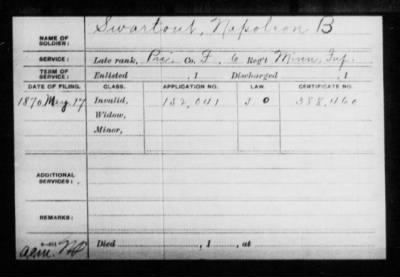 NAME OF SOLDIER: Swartout, Napoleon B
SERVICE: Late rank, Pri. Co. F, 6 Reg't Minn Inf.
TERM OF SERVICE: Enlisted , 1 Discharged , 1
DATE OF FILING. CLASS. APPLICATION NO. LAW. CERTIFICATE NO.
1870 May 17 Invalid, 152,041 388,460
Widow,
Minor,
ADDITIONAL SERVICES:
REMARKS:
Died , 1 , at